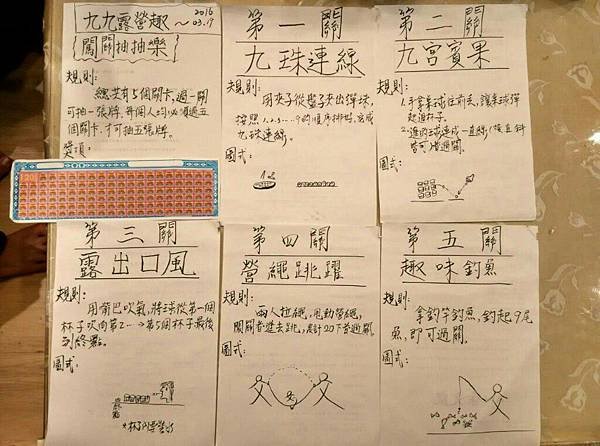 九九露營趣
2016
～03.19
闖關抽抽樂
規則:
總共有5個關卡,過一關
可抽一張牌,每個人均必須過五
個關卡,才可抽五張牌。
獎項:
第一關
九珠連線
規則:
用夾子從盤子夾出彈珠,
按照1.2.3...9的順序排好,完成
九珠連線。
圖式:
第二關
九宮賓果
規則:
1.手拿桌球往前丟,讓桌球彈
起進杯子。
2.進的球連成一直線,橫直斜
皆可,皆過關。
圖式:
第三關
露出口風
規則:
用嘴巴吹氣,將球從第一個
杯子吹向第2...→第5個杯子最後
到終點。
圖式:
第四關
營繩跳躍
規則:
兩人拉繩,甩動營繩,
闖關者進去跳,累計20下者過關。
圖式:
第五關
趣味釣魚
規則:
拿釣竿釣魚,釣起9尾
魚,即可過關。
圖式: